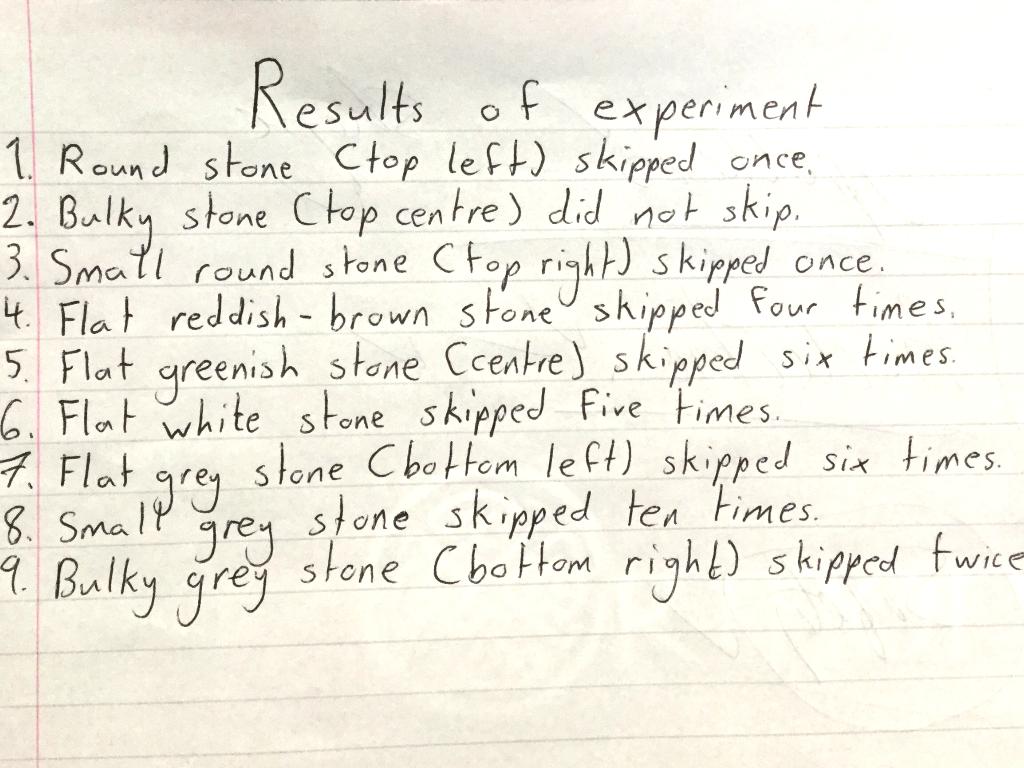 Results of experiment
1. Round stone (top left) skipped once.
2. Bulky stone (top centre) did not skip.
3. Small round stone (top right) skipped once.
4. Flat reddish-brown stone skipped four times.
5. Flat greenish stone (centre) skipped six times.
6. Flat white stone skipped five times.
7. Flat grey stone (bottom left) skipped six times.
8. Small grey stone skipped ten times.
9. Bulky grey stone (bottom right) skipped twice